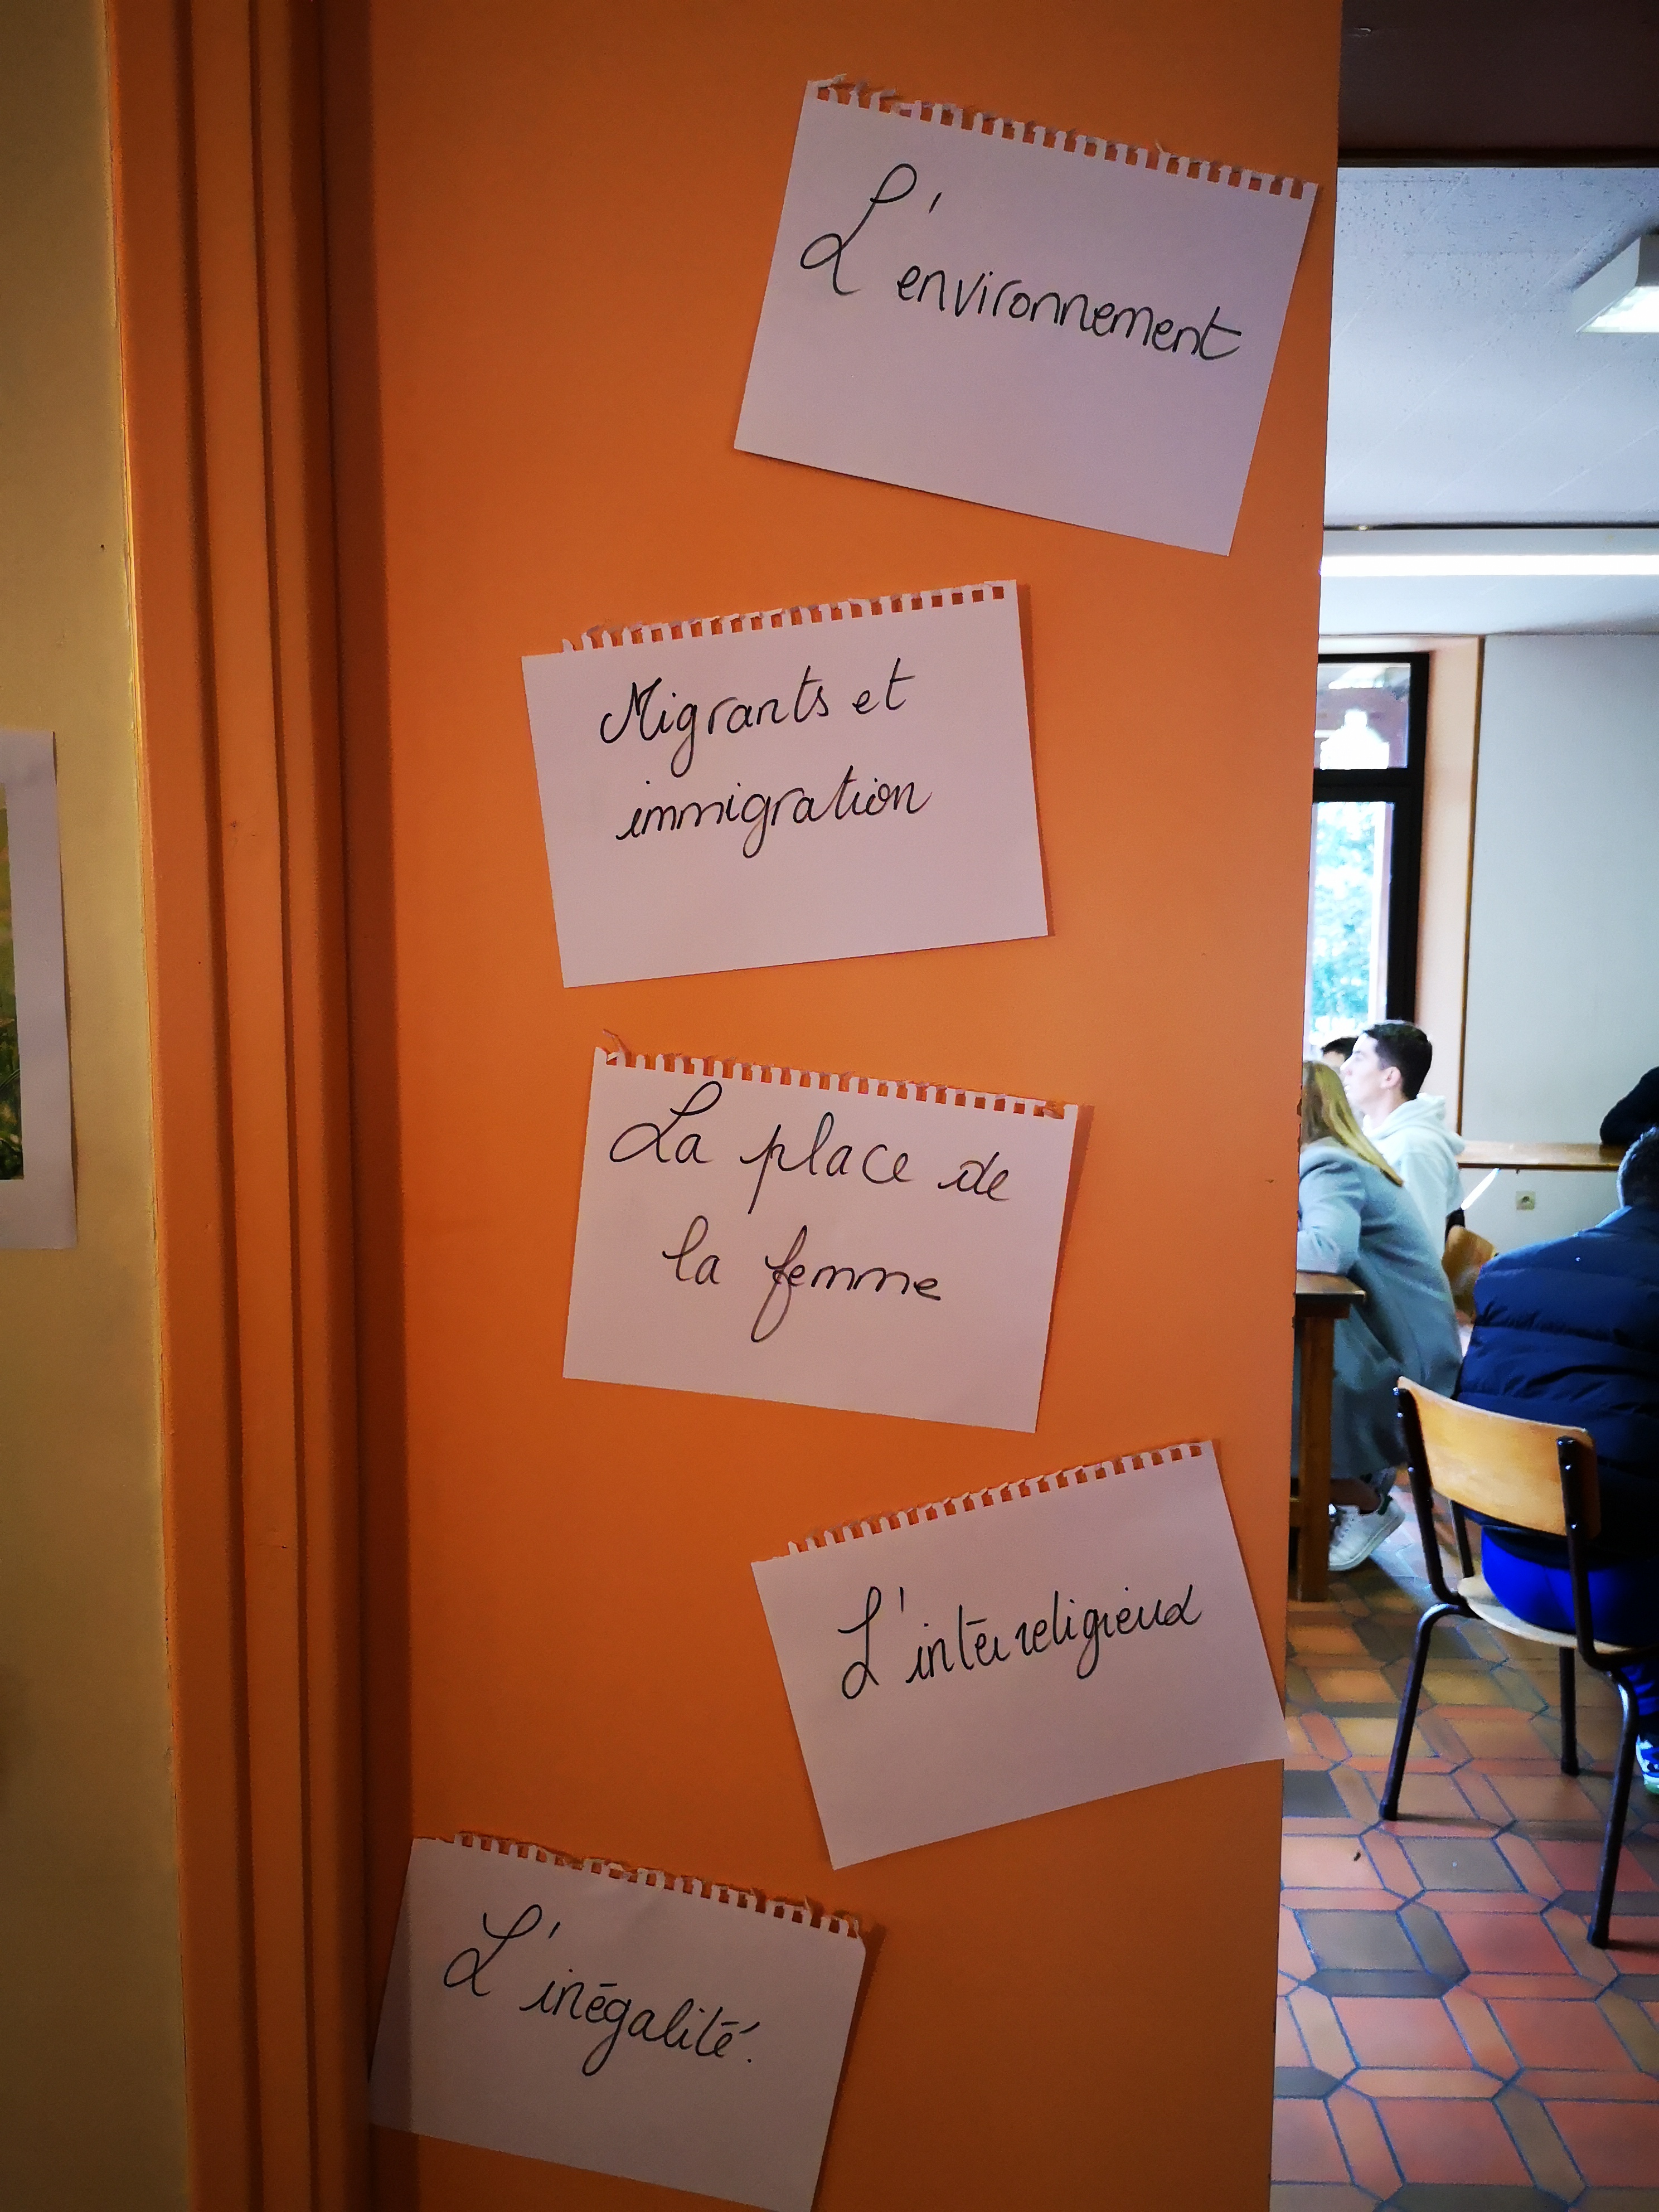 L'environnement
Migrants et
immigration
La place de
la femme
L'interreligieux
L'inégalité.